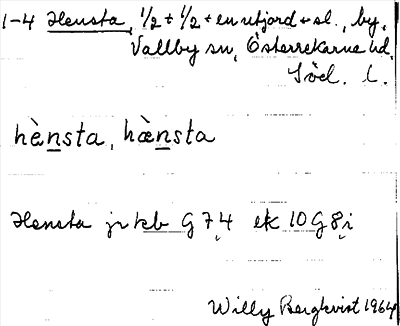 1-4 Hensta, 1/2 + 1/2 + en utjord + sl., by,
Vallby sn, Österrekarne hd,
Söd. l.
hè̱nsta, hæ̀nsta
Hensta jr kb G 7 4 ek 10 G 8 i
Willy Bergkvist 1964